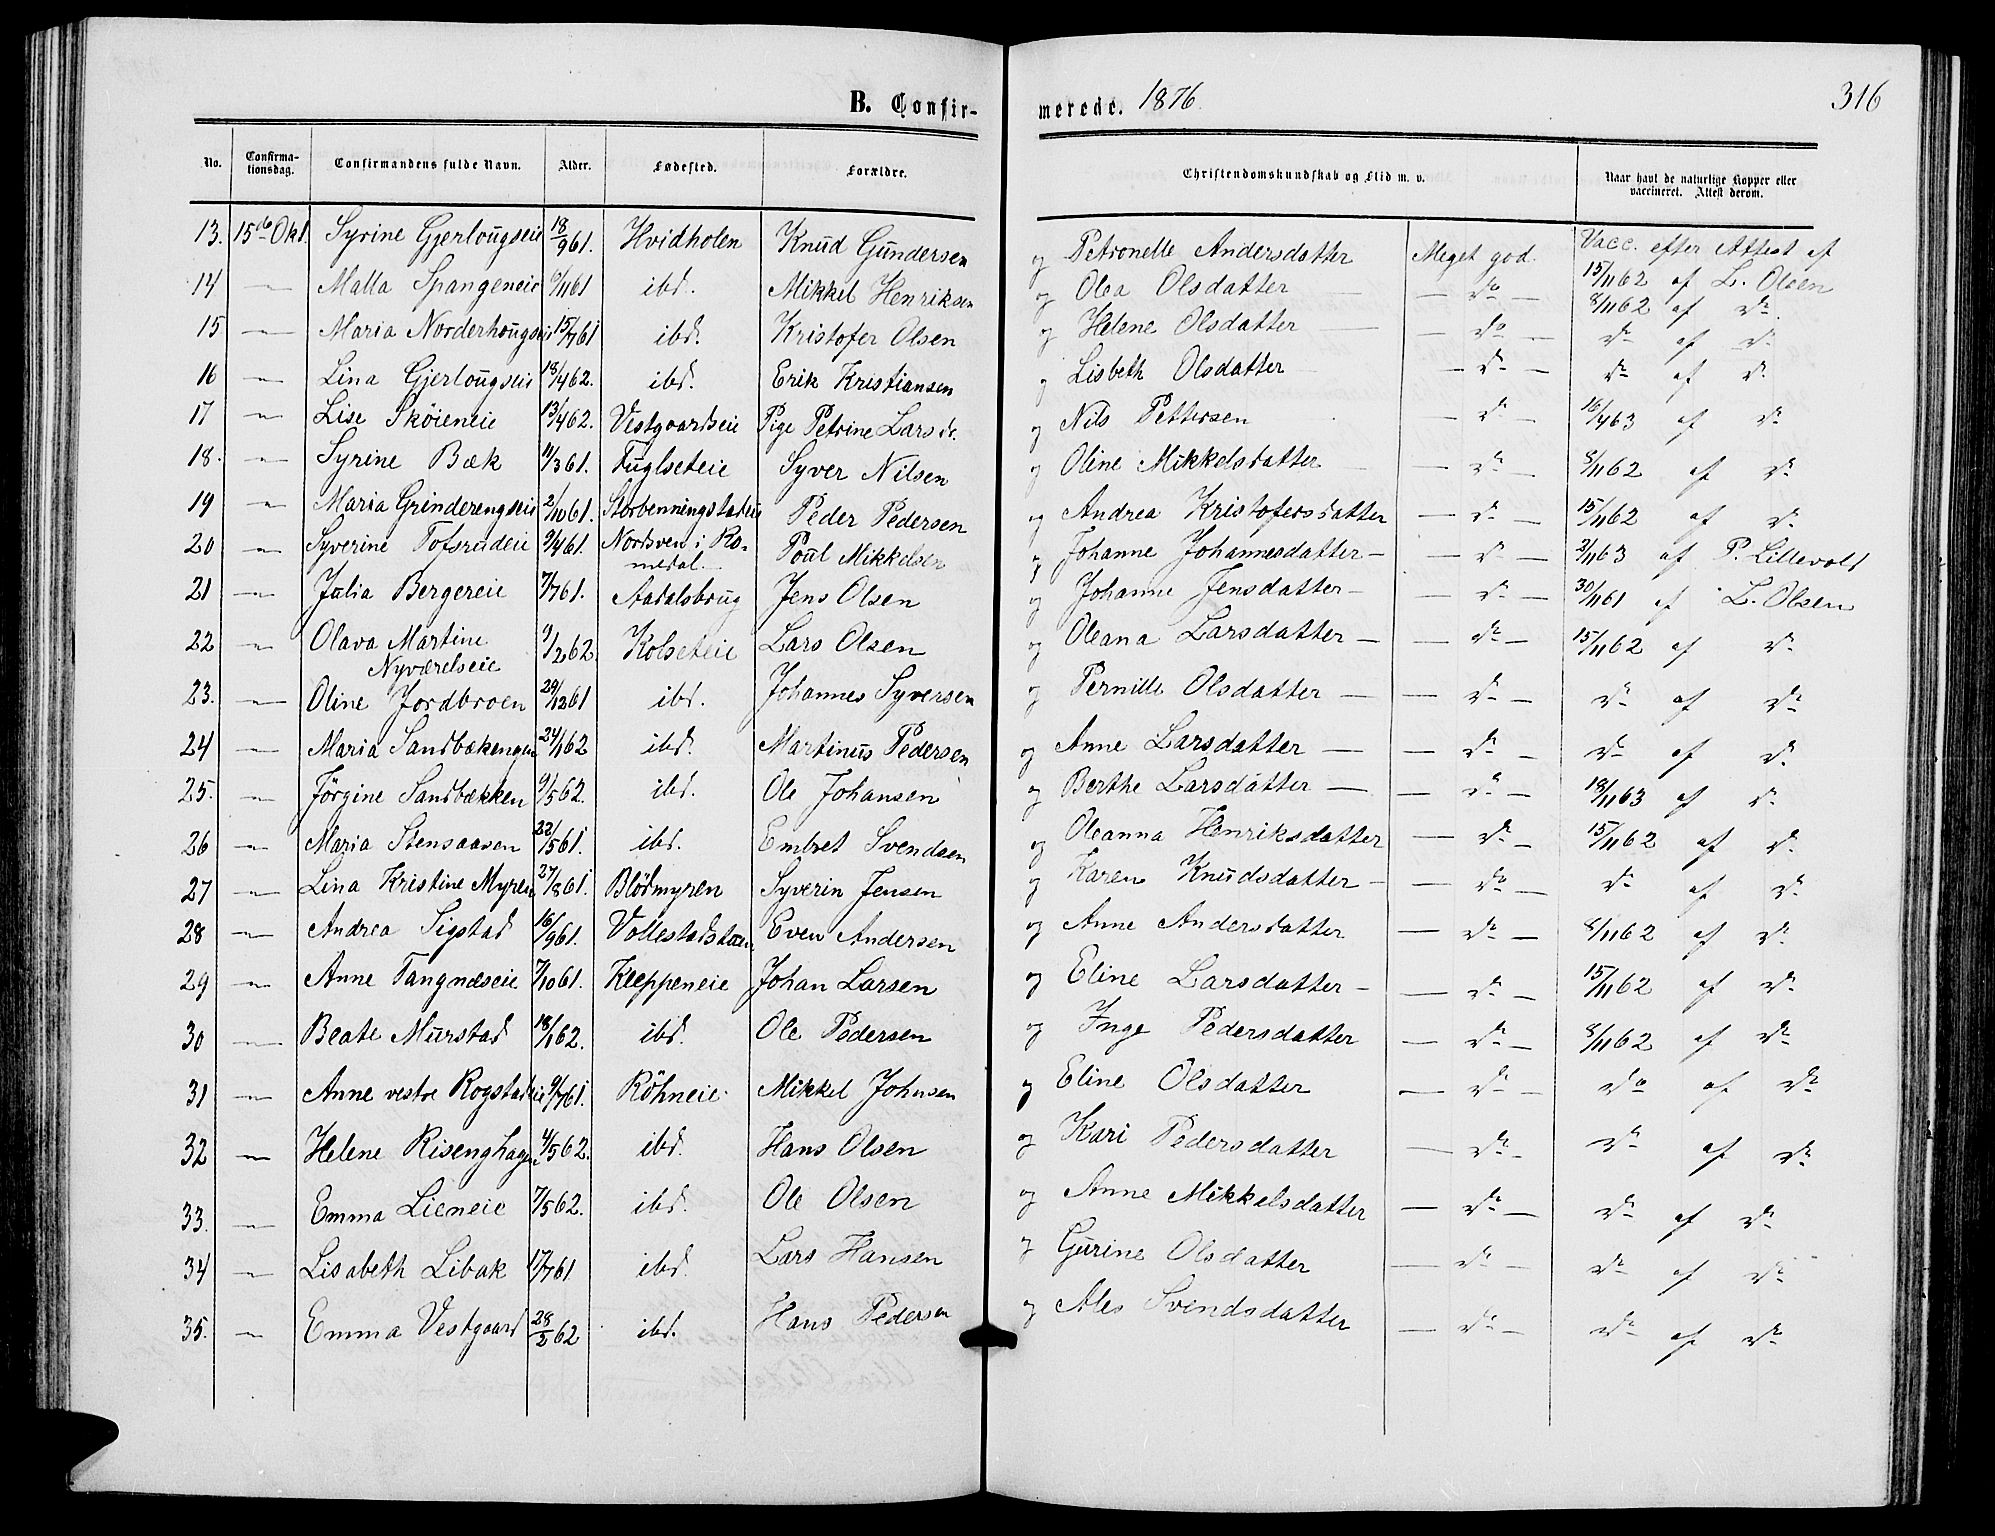 B. Confir-
merede. 1876.
316
No. Confirma-tionsdag. Confirmandens fulde Navn. Alder. Fødested. Forældre. Christendomskundskab og Flid m. v. Naar havt de naturlige Kopper eller vaccineret. Attest derom.
13. 15de Okt. Syrine Gjerlougseie 18/9 61. Hvidholen Knud Gundersen og Petronelle Andersdatter Meget god. Vacc. efter Attest af 15/11 62 af L. Olsen
14 — Malla Spangeneie 6/11 61 ibd. Mikkel Henriksen og Olea Olsdatter — do — 8/11 62 af do
15 — Maria Norderhougseie 15/7 61 ibd. Kristofer Olsen og Helene Olsdatter — do — do af do
16 — Lina Gjerlougseie 18/4 62. ibd. Erik Kristiansen og Lisbeth Olsdatter — do — do af do
17 — Lise Skøieneie 13/4 62. Vestgaardseie Pige Petrine Larsdr. og Nils Pettersen — do — 16/4 63 af do
18. — Syrine Bæk 11/3 61. Fuglseteie Syver Nilsen og Oline Mikkelsdatter — do — 8/11 62 af do
19 — Maria Grinderengseie 2/10 61. Storbenningstadeie Peder Pedersen og Andrea Kristofersdatter — do — 15/11 62 af do
20 — Syverine Tofsrudeie 9/4 61. Nordsven i Ro-
medal. Poul Mikkelsen og Johanne Johannesdatter — do — 2/11 63 af P. Lillevold
21 — Julia Bergereie 7/7 61. Aadalsbrug Jens Olsen og Johanne Jensdatter — do — 30/11 61 af L. Olsen
22 — Olava Martine
Nyværelseie 9/2 62. Kolseteie Lars Olsen og Oleana Larsdatter — do — 15/11 62 af do
23. — Oline Jordbroen 29/12 61 ibd. Johannes Syversen og Pernille Olsdatter — do — do af do
24 — Maria Sandbækengen 24/1 62 ibd. Martinus Pedersen og Anne Larsdatter — do — do af do
25. — Jörgine Sandbækken 9/5 62. ibd. Ole Johansen og Berthe Larsdatter — do — 18/11 63 af do
26 — Maria Stensaasen 22/5 61. ibd. Embret Svendsen og Oleanna Henriksdatter — do — 15/11 62 af do
27 — Lina Kristine Myren 27/8 61. Blödmyren Syverin Jensen og Karen Knudsdatter — do — do af do
28 — Andrea Sigstad 16/9 61. Even Andersen og Anne Andersdatter — do — 8/11 62 af do
29 — Anne Tangnæseie 7/10 61. Kleppeneie Johan Larsen og Eline Larsdatter — do — 15/11 62 af do
30 — Beate Murstad 18/1 62. ibd. Ole Pedersen og Inge Pedersdatter — do — 8/11 62 af do
31 — Anne vestre Rogstadeie 9/7 61. Röhneie Mikkel Johnsen og Eline Olsdatter — do — do af do
32 — Helene Risenghagen 4/5 62. ibd. Hans Olsen og Kari Pedersdatter — do — do af do
33. — Emma Lieneie 7/5 62. ibd. Ole Olsen og Anne Mikkelsdatter — do — do af do
34 — Lisabeth Libak 17/7 61 ibd. Lars Hansen og Gurine Olsdatter — do — do af do
35. — Emma Vestgaard 28/2 62 ibd. Hans Pedersen og Ales Svendsdatter — do — do af do